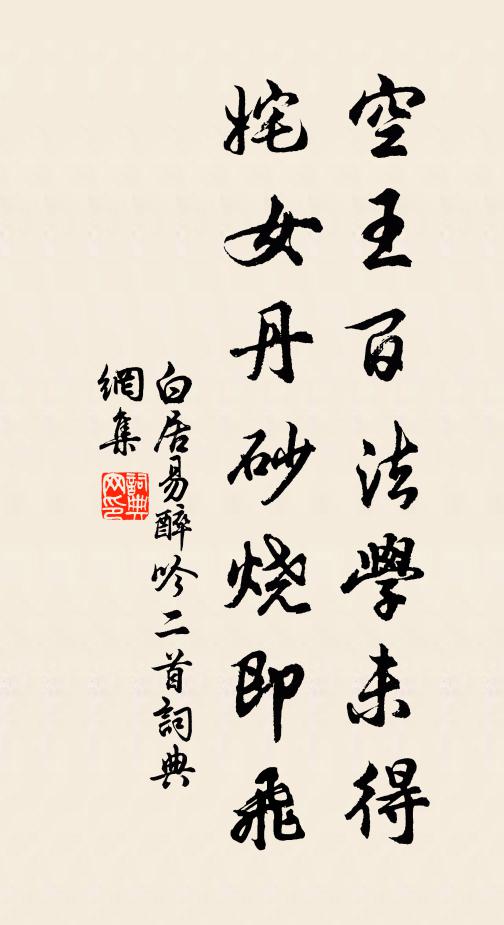 空王百法學未得
姹女丹砂烧即飛
白居易醉吟二首詞典
網集
詞典
网印